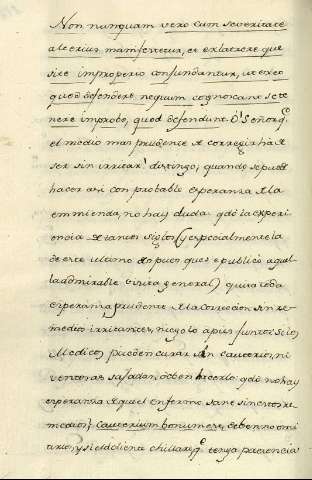 Non nunquam vero cum severitate
alterius manifestetur, et ex latere que
site improperio confundantur, ut ex eo
quod defendere nequium cognoscant se te
nere improbe, quod defendunt. D.r Señor q.e
el medio mas prudente de corregir ha de
ser sin irritar: distingo, quando se puede
hacer asi con probable esperanza de la
enmienda, no hay duda: q.do la experi
encia de tantos siglos (y especialmente la
de este ultimo despues que se publicó aquel
la admirable visita general) quita toda
esperanza prudente de la correccion sin re
medios irritantes, niegolo a pies juntos. Si los
Medicos pueden curar sin cauterios, ni
ventosas sajadas, deben hacerlo: q.do no hay
esperanza de que el enfermo sane sin estos re
medios, cauterium bonum est, deben no omi
tirlos, y si el doliente chillare, q.e tenga paciencia